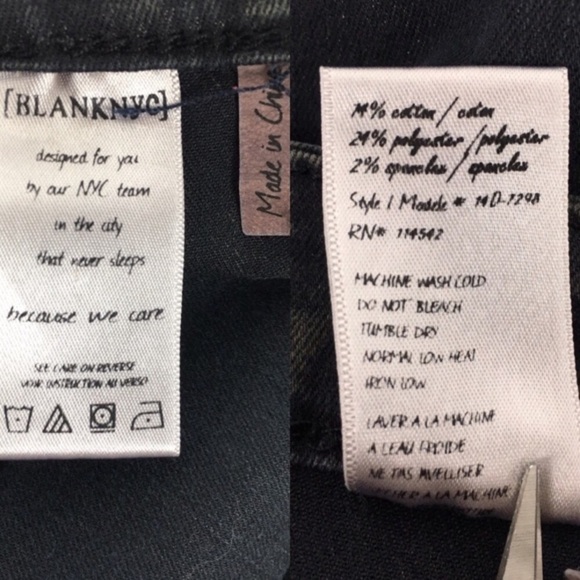 [BLANKNYC]
designed for you
by our NYC team
in the city
that never sleeps
because we care
SEE CARE ON REVERSE
VOIR INSTRUCTION AU VERSO
Made in China
74% cotton / coton
24% polyester / polyester
2% spandex / spandex
Style / Modele # 14D-7298
RN# 114542
MACHINE WASH COLD
DO NOT BLEACH
TUMBLE DRY
NORMAL LOW HEAT
IRON LOW
LAVER A LA MACHINE
A L'EAU FROIDE
NE PAS JAVELLISER
A LA MACHINE